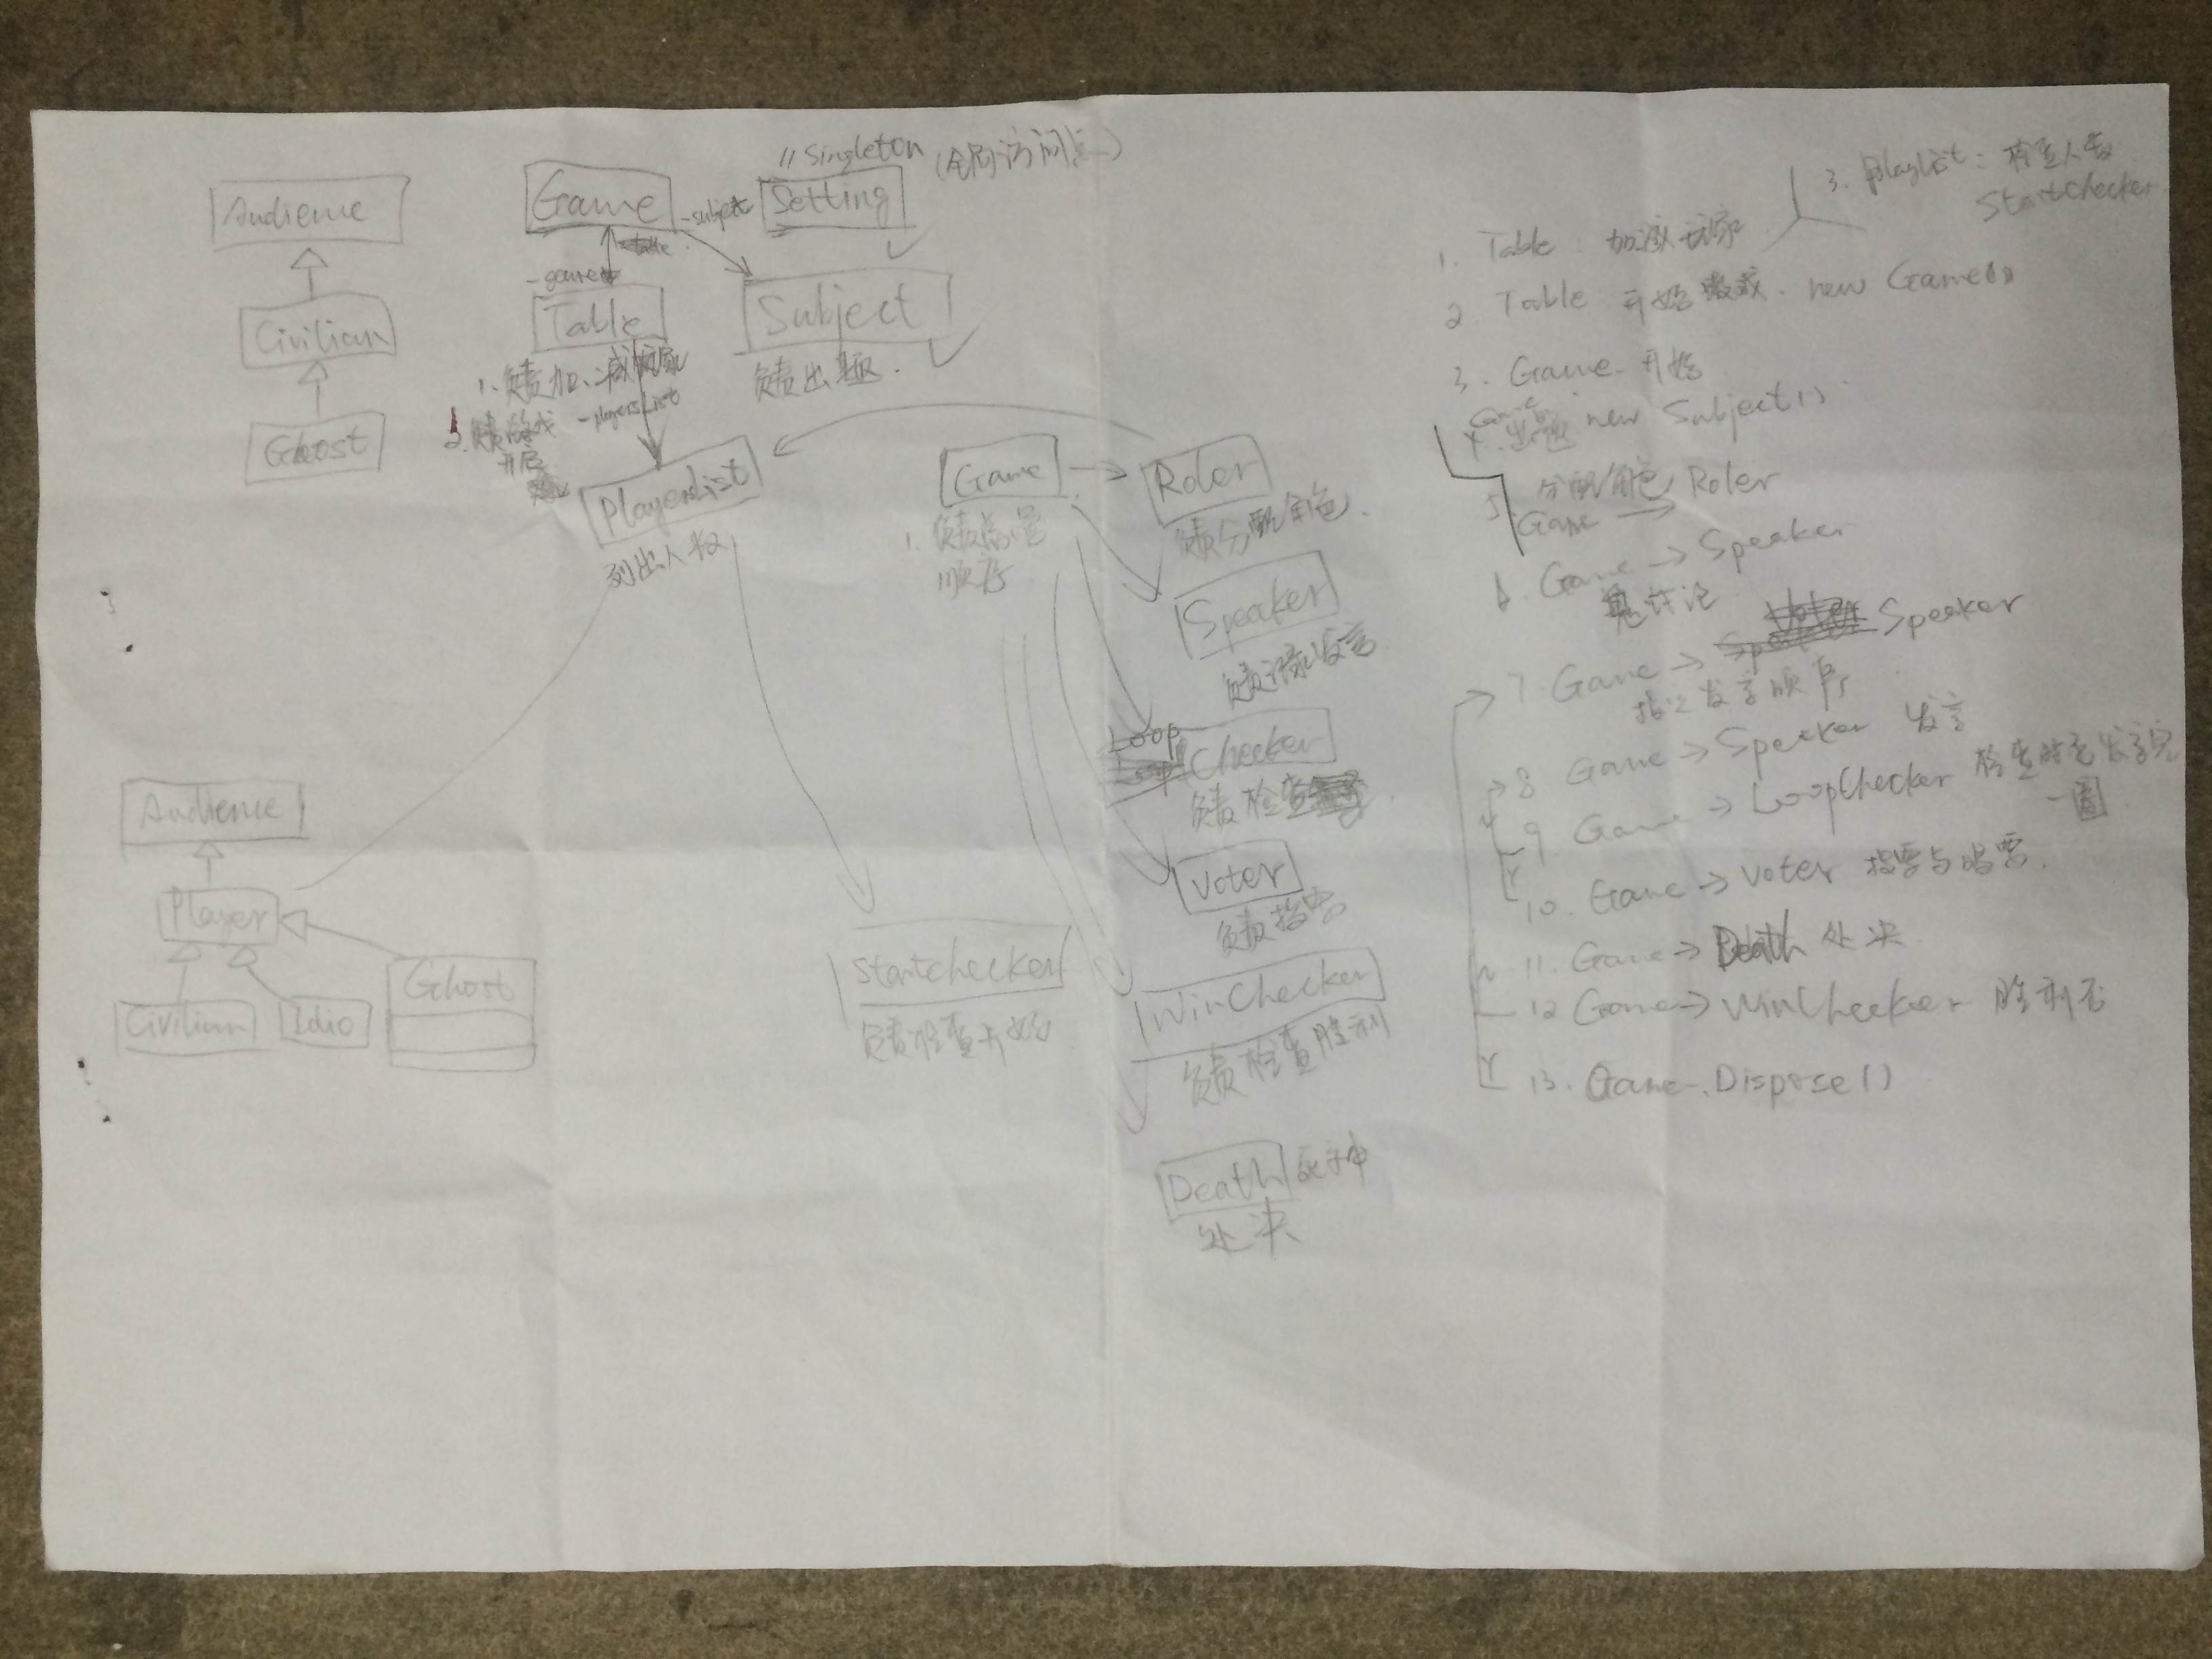 Audience
Civilian
Ghost
Game
//Singleton (全局访问点)
Setting
-subject
-game
Table
Subject
1. 负责加、减玩家
负责出题.
2. 负责游戏
开启
-playersList
PlayersList
列出人数
Game
1. 负责
顺序
Roler
负责分配角色.
Speaker
负责记录发言.
Loop
Checker
负责检查
Voter
负责投票
StartChecker
负责检查开始
WinChecker
负责检查胜利
Death 死神
处决
Audience
Player
Civilian
Idio
Ghost
3. PlayList: 检查人数
StartChecker
1. Table 加减玩家
2. Table 开始游戏. new Game()
3. Game 开始
Game
4. 出题 new Subject()
分配角色 Roler
5. Game →
6. Game → Speaker
鬼讨论
7 Game → Speaker
指定发言顺序
8 Game → Speaker 发言
9. Game → LoopChecker 检查时否发言完
一圈
Y
10. Game → Voter 投票与唱票.
11. Game → Death 处决
N
12 Game → WinChecker 胜利否
Y
13. Game.Dispose()